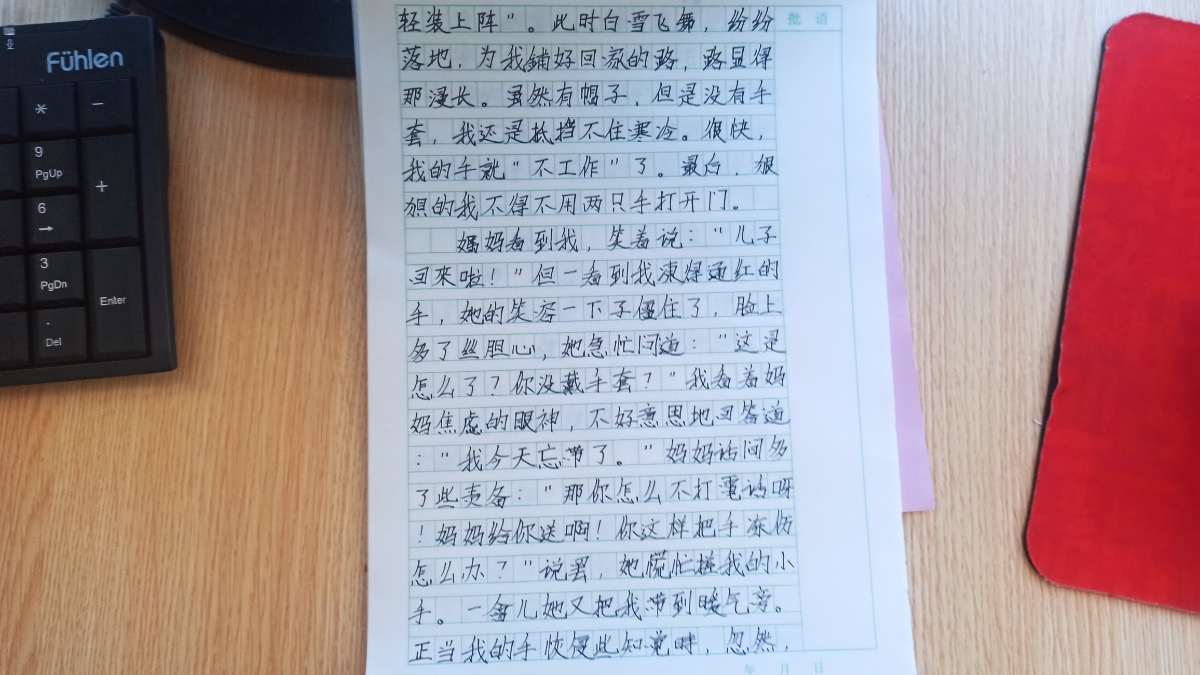 Fühlen
*
-
9
PgUp
+
6
→
3
PgDn
Enter
.
Del
批语
轻装上阵"。此时白雪飞舞，纷纷
落地，为我铺好回家的路，路显得
那漫长。虽然有帽子，但是没有手
套，我还是抵挡不住寒冷。很快，
我的手就"不工作"了。最后，狼
狈的我不得不用两只手打开门。
妈妈看到我，笑着说："儿子
回来啦！"但一看到我冻得通红的
手，她的笑容一下子僵住了，脸上
多了丝胆心，她急忙问道："这是
怎么了？你没戴手套？"我看着妈
妈焦虑的眼神，不好意思地回答道
："我今天忘带了。"妈妈话间多
了些责备："那你怎么不打电话呀
！妈妈给你送啊！你这样把手冻伤
怎么办？"说罢，她慌忙搓我的小
手。一会儿她又把我带到暖气旁。
正当我的手恢复些知觉时，忽然，
年 月 日